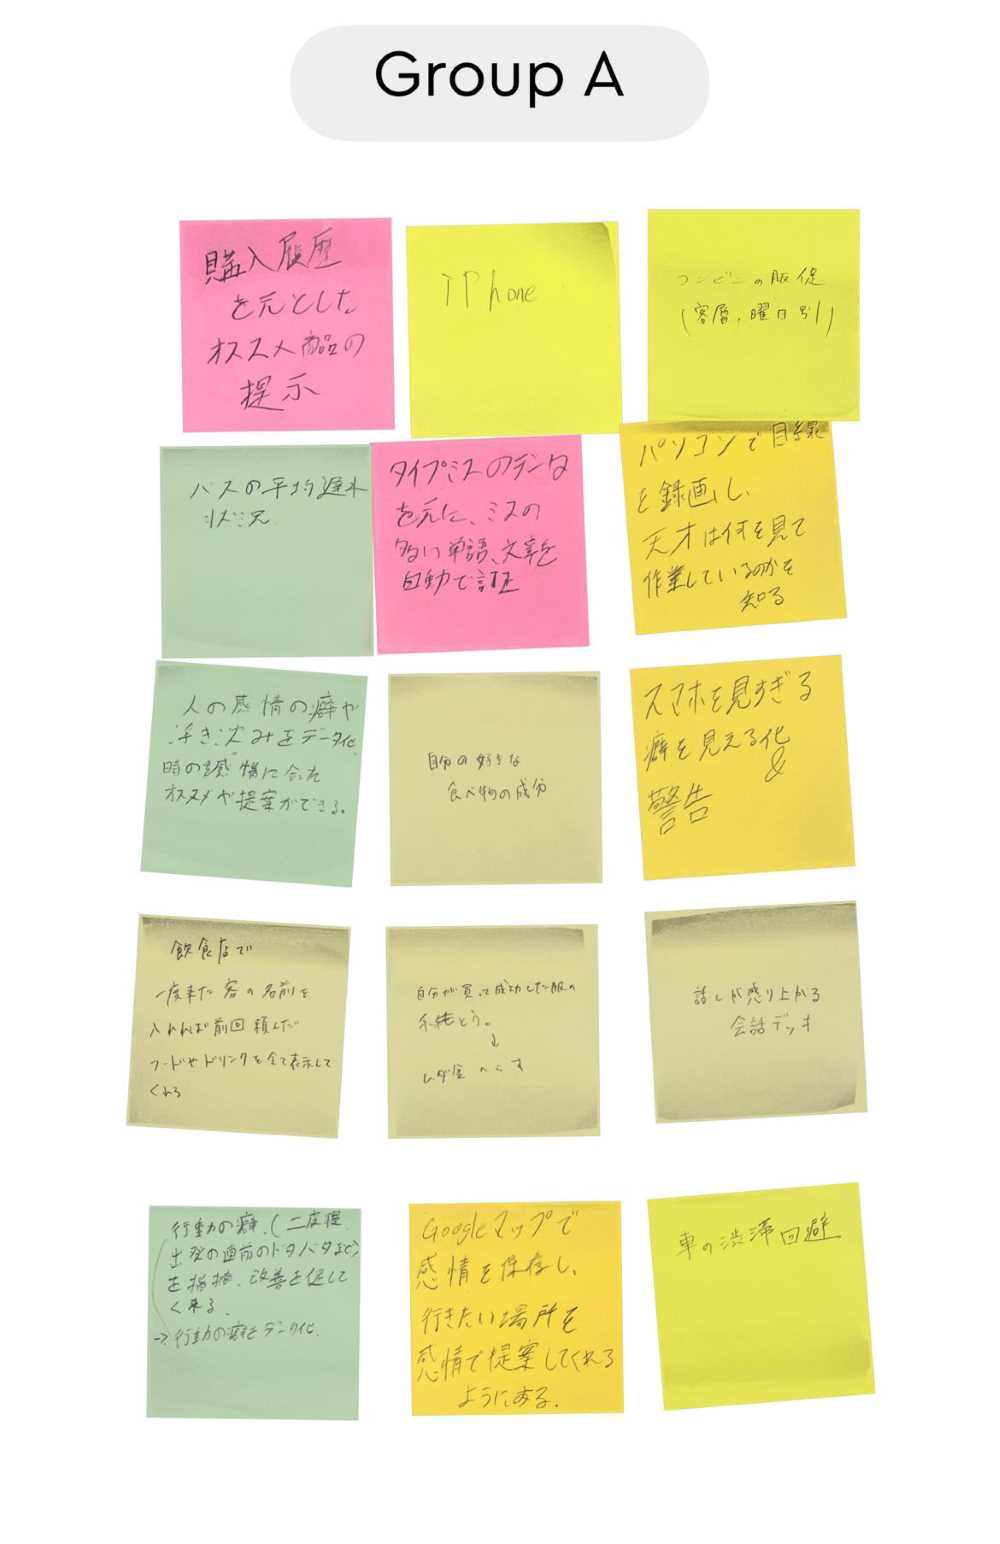 Group A
購入履歴
を元とした
オススメ商品の
提示
iPhone
コンビニの販促
(客層、曜日別)
バスの平均遅れ
状況
タイプミスのデータ
を元に、ミスの
多い単語、文章を
自動で訂正
パソコンで目線
を録画し、
天才は何を見て
作業しているのかを
知る
人の感情の癖や
浮き沈みをデータ化
時の感情に合った
オススメや提案ができる。
自分の好きな
食べ物の成分
スマホを見すぎる
癖を見える化
&
警告
飲食店で
一度来た客の名前を
入れれば前回頼んだ
フードやドリンクを全て表示して
くれる
自分が買って成功した服の
系統とう。
↓
ムダ金へらす
話しが盛り上がる
会話デッキ
行動の癖、(二度寝、
出発の直前のドタバタなど)
を指摘、改善を促して
く来る。
→行動の癖をデータ化
Googleマップで
感情を保存し、
行きたい場所を
感情で提案してくれる
ようにする。
車の渋滞回避